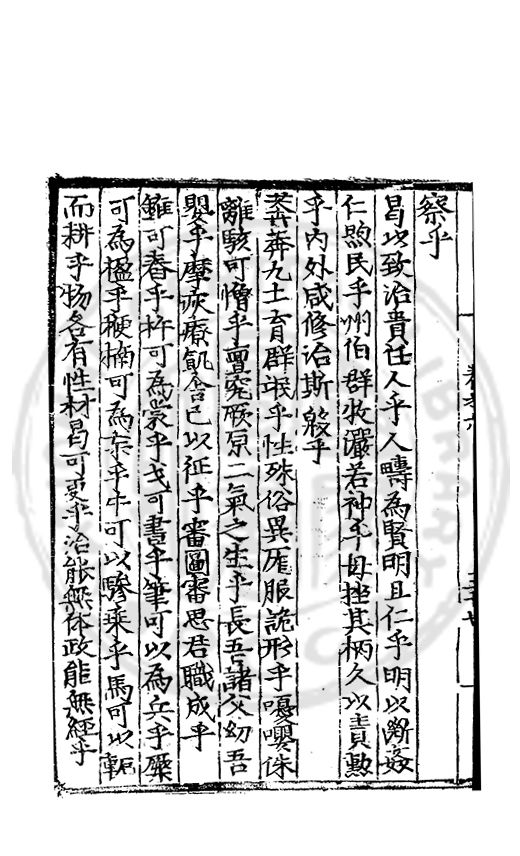 察乎
曷以致治貴任人乎人疇為賢明且仁乎明以斷姦
仁煦民乎州伯群牧灑若神乎毋挫其柄久以責勲
乎内外咸修治斯般乎
莽莽九土育群氓乎性殊俗異厖服詭形乎嚘嚶侏
離駭可憎乎亶究厥原二氣之生乎長吾諸父幼吾
嬰乎摩疾療飢舍已以征乎審圖審思君職成乎
錐可舂乎杵可為乎戈可畫乎筆可以為兵乎檿
可為楹乎楩楠可為乎牛可以驂乘乎馬可以軛
而耕乎物各有性材曷可更乎治能無体政能無經乎